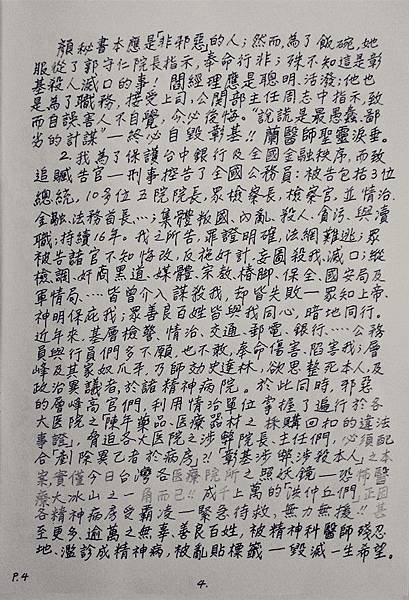 顏秘書本應是「非邪惡」的人；然而，為了飯碗，她
服從了郭守仁院長指示，奉命行非；殊不知這是彰
基殺人滅口的事！閻經理應是聰明、活潑；他也
是為了職務，接受上司，公關部主任周志中指示，致
而自誤害人不自覺，今必後悔。"說謊是最愚蠢、鄙
劣的計謀"—終必自毀彰基!! 蘭醫師聖靈淚垂。
2. 我為了保護台中銀行及全國金融秩序，而致
追贓告官—刑事控告了全國公務員：被告包括3位
總統，10多位五院院長，眾檢察長，檢察官，並情治、
金融、法務首長…；集體叛國、內亂、殺人、貪污、與瀆
職；持續16年。我之所告，罪證明確，法網難逃；眾
被告諸官不知悔改，反施奸計，妄圖殺我、滅口；縱
檢調、奸商黑道、媒體、宗教、椿腳、保全、國安局及
軍情局、…皆曾介入謀殺我，卻皆失敗—眾知上帝、
神明保庇我；眾善良百姓皆與我同心，暗地同行。
近年來，基層檢警、情治、交通、郵電、銀行、…公務
員與行員們多不願，也不敢，奉命傷害、陷害我；層
峰及其家奴爪牙，乃師効史達林，欲思整死本人，及
政治異議者，於諸精神病院。於此同時，邪惡
的層峰高官們，利用情治單位掌握了遍行於各
大醫院之「陳年藥品、醫療器材之採購回扣的違法
事證」，脅迫各大醫院之涉弊院長、主任們，必須配
合「剷除異己者於病房」?!「彰基涉弊涉殺本人」之本
案實僅今日台灣各醫療院所之照妖鏡—恐怖醫
療大冰山之一角而已!! 成千上萬的「洪仲丘們」正因
各精神病房受霸凌—緊急待救，無力無援!! 甚
至更多、逾萬之無辜、善良百姓，被精神科醫師殘忍
地、濫診成精神病，被亂貼標籤—毀滅一生希望。
P.4
4.